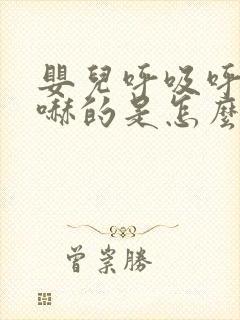 嬰兒呼吸呼
嚇的是怎麼
曾崇勝